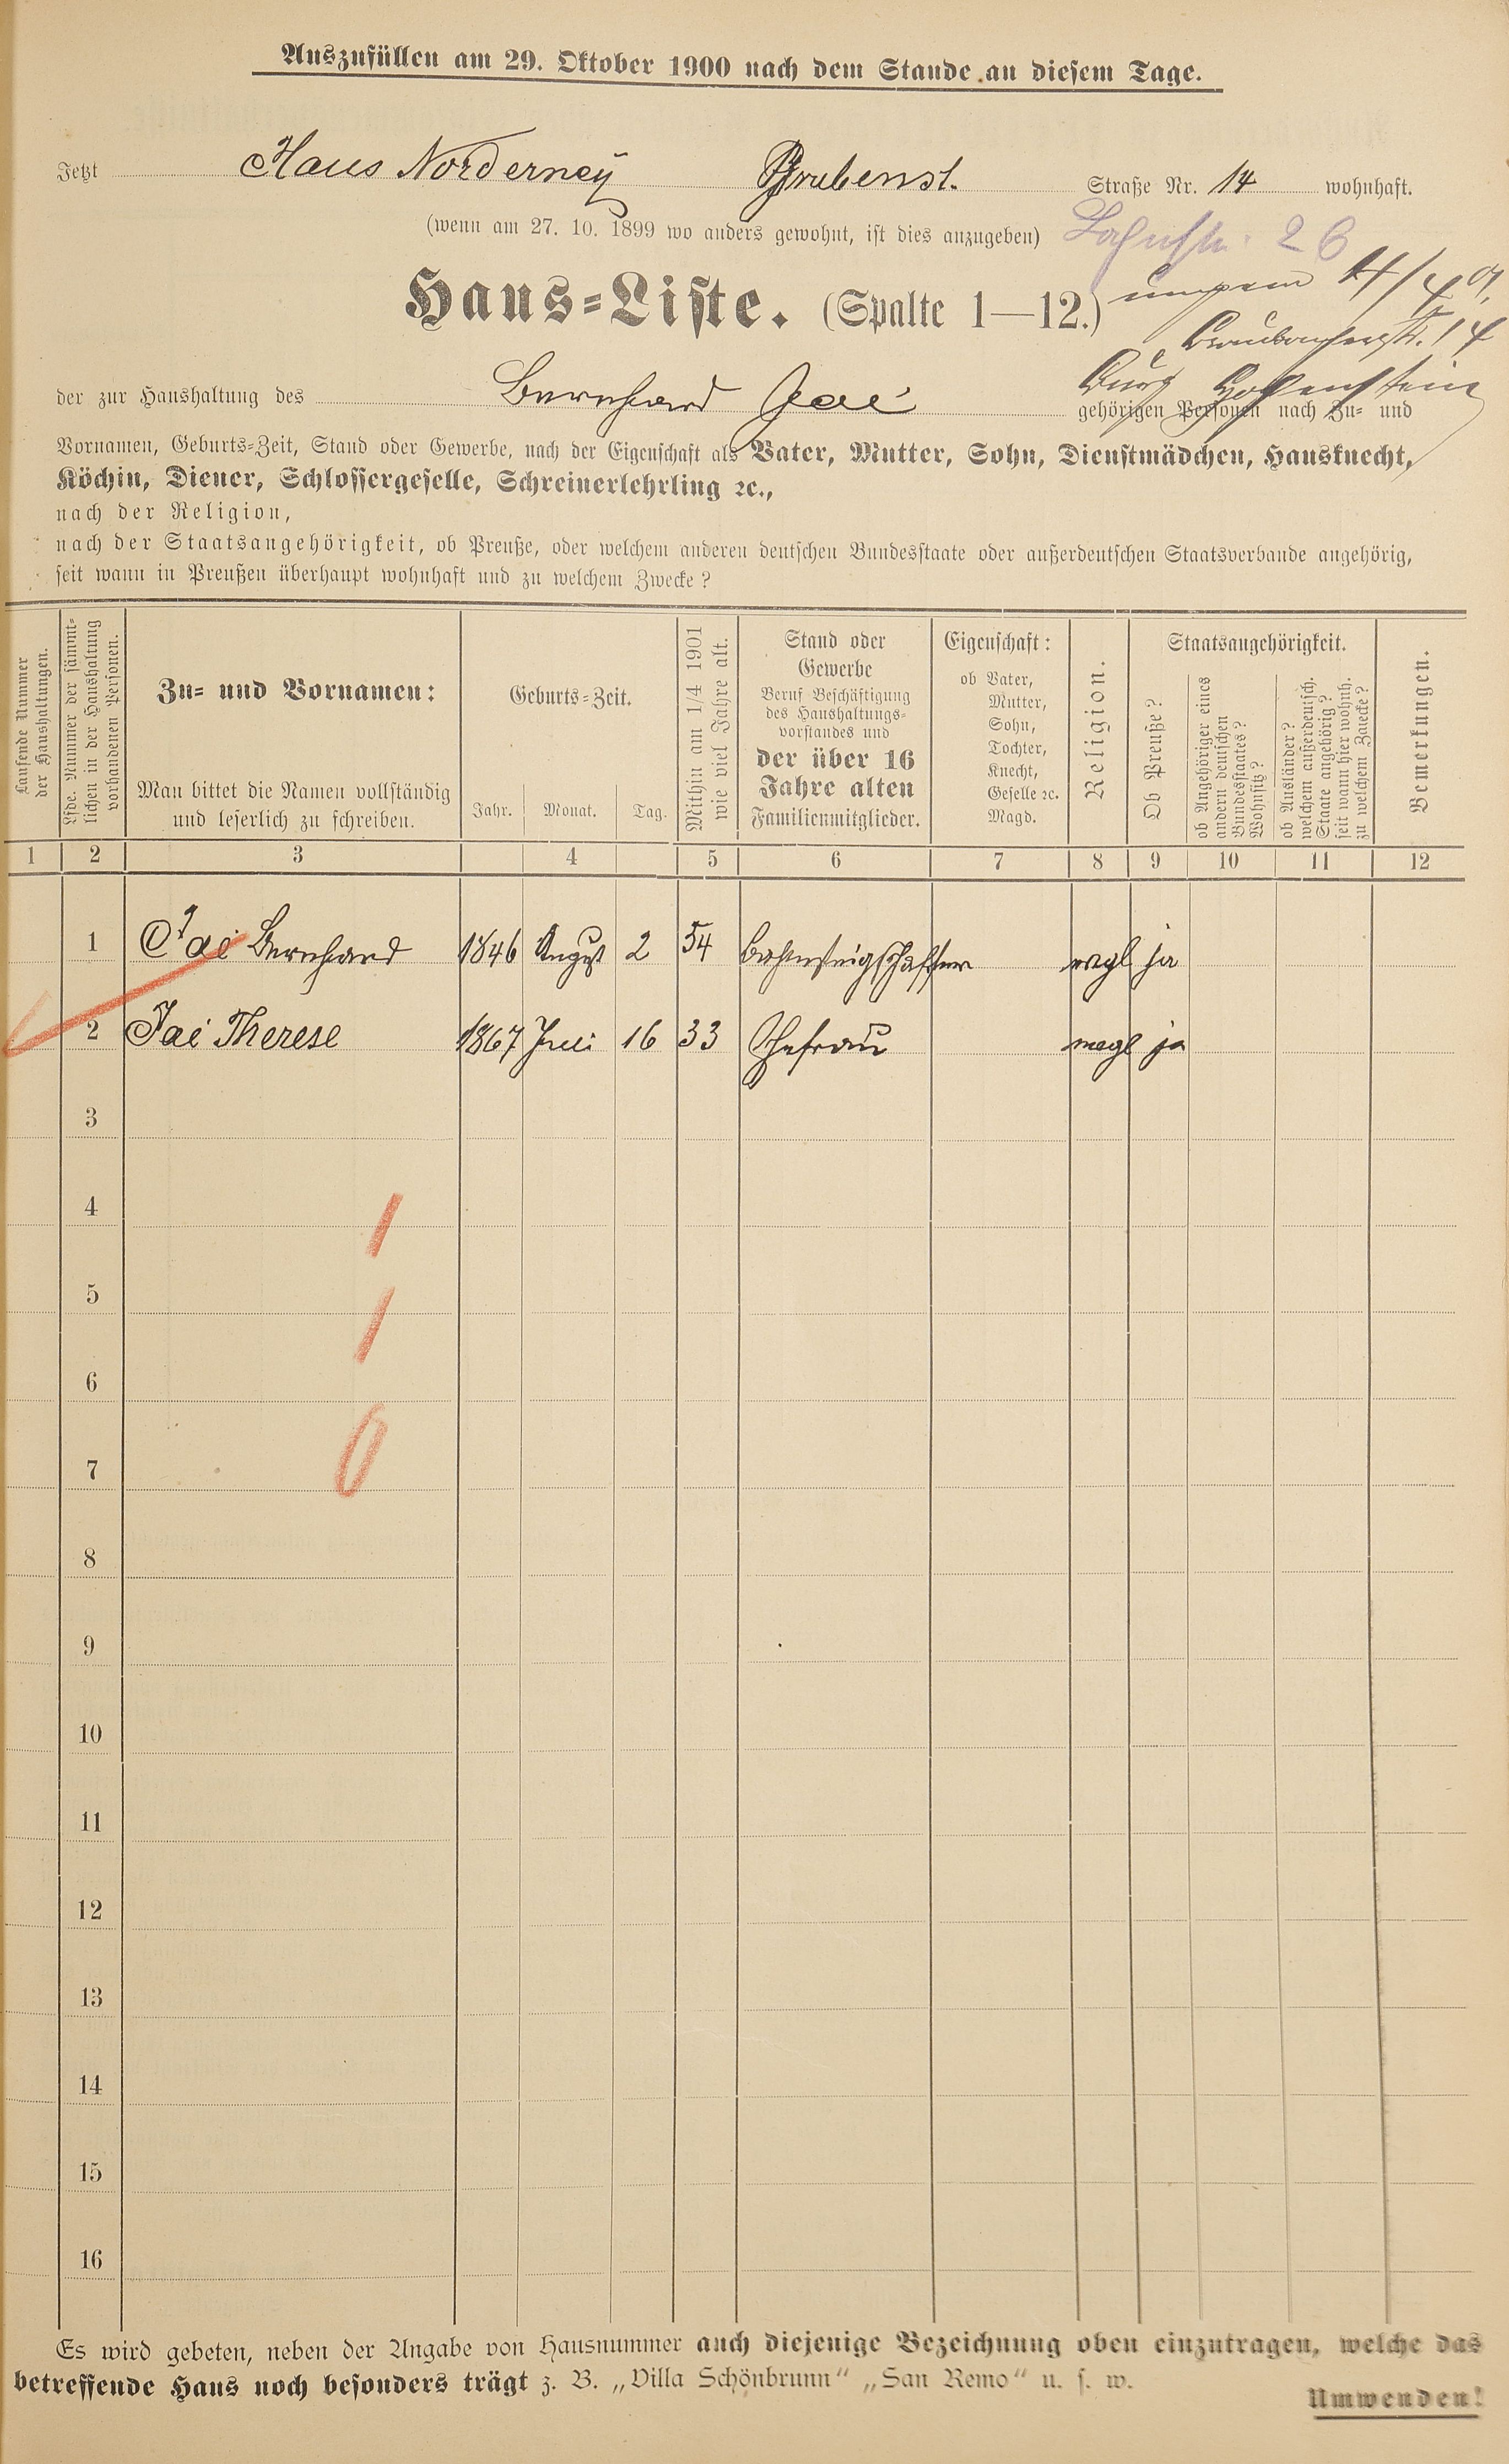 Auszufüllen am 29. Oktober 1900 nach dem Stande an diesem Tage.
Jetzt Haus Norderney Grubenst. Straße Nr. 14 wohnhaft.
(wenn am 27. 10. 1899 wo anders gewohnt, ist dies anzugeben) Lahnstr. 26
4/4 01
Haus-Liste. (Spalte 1—12.)
Braubacherstr. 14
Burg Hohenstein
der zur Haushaltung des Bernhard Jaé gehörigen Personen nach Zu- und
Vornamen, Geburts-Zeit, Stand oder Gewerbe, nach der Eigenschaft als Vater, Mutter, Sohn, Dienstmädchen, Hausknecht,
Köchin, Diener, Schlossergeselle, Schreinerlehrling ꝛc.,
nach der Religion,
nach der Staatsangehörigkeit, ob Preuße, oder welchem anderen deutschen Bundesstaate oder außerdeutschen Staatsverbande angehörig,
seit wann in Preußen überhaupt wohnhaft und zu welchem Zwecke?
Laufende Nummer
der Haushaltungen.
Lfde. Nummer der sämmt-
lichen in der Haushaltung
vorhandenen Personen.
Zu- und Vornamen:
Man bittet die Namen vollständig
und leserlich zu schreiben.
Geburts-Zeit.
Jahr. Monat. Tag.
Mithin am 1/4 1901
wie viel Jahre alt.
Stand oder
Gewerbe
Beruf Beschäftigung
des Haushaltungs-
vorstandes und
der über 16
Jahre alten
Familienmitglieder.
Eigenschaft:
ob Vater,
Mutter,
Sohn,
Tochter,
Knecht,
Geselle ꝛc.
Magd.
Religion.
Staatsangehörigkeit.
Ob Preuße?
ob Angehöriger eines
andern deutschen
Bundesstaates?
Wohnsitz?
ob Ausländer?
welchem außerdeutsch.
Staate angehörig?
seit wann hier wohnh.
zu welchem Zwecke?
Bemerkungen.
1 2 3 4 5 6 7 8 9 10 11 12
1 Jaé Bernhard 1846 August 2 54 Bahnsteigschaffner evgl ja
2 Jaé Therese 1867 Juli 16 33 Ehefrau ja
3
4
5
6
7
8
9
10
11
12
13
14
15
16
1
1
0
Es wird gebeten, neben der Angabe von Hausnummer auch diejenige Bezeichnung oben einzutragen, welche das
betreffende Haus noch besonders trägt z. B. „Villa Schönbrunn“ „San Remo“ u. s. w.
Umwenden!